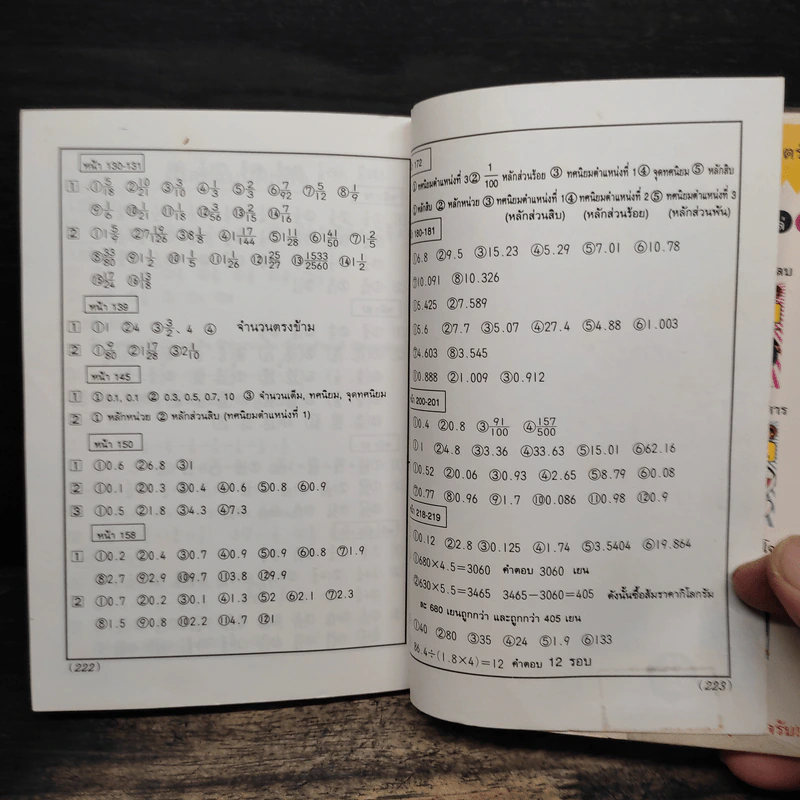 หน้า 130-131
1 ①5/18 ②10/21 ③3/10 ④1/3 ⑤2/3 ⑥7/92 ⑦5/12 ⑧1/9
⑨1/6 ⑩1/21 ⑪1/18 ⑫3/56 ⑬2/15 ⑭7/16
2 ①1 5/9 ②7 19/126 ③8 1/8 ④1 17/144 ⑤1 11/28 ⑥1 41/50 ⑦1 2/5
⑧53/80 ⑨1 1/2 ⑩1 1/5 ⑪1 1/26 ⑫1 25/27 ⑬1533/2560 ⑭1 1/2
⑮17/24 ⑯13/18
หน้า 139
1 ①1 ②4 ③3/2、4 ④ จำนวนตรงข้าม
2 ①9/80 ②1 17/28 ③2 1/10
หน้า 145
1 ① 0.1, 0.1 ② 0.3, 0.5, 0.7, 10 ③ จำนวนเต็ม, ทศนิยม, จุดทศนิยม
2 ① หลักหน่วย ② หลักส่วนสิบ (ทศนิยมตำแหน่งที่ 1)
หน้า 150
1 ①0.6 ②6.8 ③1
2 ①0.1 ②0.3 ③0.4 ④0.6 ⑤0.8 ⑥0.9
3 ①0.5 ②1.8 ③4.3 ④7.3
หน้า 158
1 ①0.2 ②0.4 ③0.7 ④0.9 ⑤0.9 ⑥0.8 ⑦1.9
⑧2.7 ⑨2.9 ⑩9.7 ⑪3.8 ⑫9.9
2 ①0.7 ②0.2 ③0.1 ④1.3 ⑤2 ⑥2.1 ⑦2.3
⑧1.5 ⑨0.8 ⑩2.2 ⑪4.7 ⑫1
(222)
172
① ทศนิยมตำแหน่งที่ 3 ② 1/100 หลักส่วนร้อย ③ ทศนิยมตำแหน่งที่ 1 ④ จุดทศนิยม ⑤ หลักสิบ
① หลักสิบ ② หลักหน่วย ③ ทศนิยมตำแหน่งที่ 1 ④ ทศนิยมตำแหน่งที่ 2 ⑤ ทศนิยมตำแหน่งที่ 3
(หลักส่วนสิบ) (หลักส่วนร้อย) (หลักส่วนพัน)
180-181
①6.8 ②9.5 ③15.23 ④5.29 ⑤7.01 ⑥10.78
10.091 ⑧10.326
5.425 ②7.589
①6.6 ②7.7 ③5.07 ④27.4 ⑤4.88 ⑥1.003
4.603 ⑧3.545
①0.888 ②1.009 ③0.912
200-201
①0.4 ②0.8 ③91/100 ④157/500
①1 ②4.8 ③3.36 ④33.63 ⑤15.01 ⑥62.16
①0.52 ②0.06 ③0.93 ④2.65 ⑤8.79 ⑥0.08
0.77 ⑧0.96 ⑨1.7 ⑩0.086 ⑪0.98 ⑫0.9
218-219
①0.12 ②2.8 ③0.125 ④1.74 ⑤3.5404 ⑥19.864
①680×4.5=3060 คำตอบ 3060 เยน
②630×5.5=3465 3465−3060=405 ดังนั้นซื้อส้มราคากิโลกรัม
ละ 680 เยนถูกกว่า และถูกกว่า 405 เยน
①40 ②80 ③35 ④24 ⑤1.9 ⑥133
86.4÷(1.8×4)=12 คำตอบ 12 รอบ
(223)
ลบ